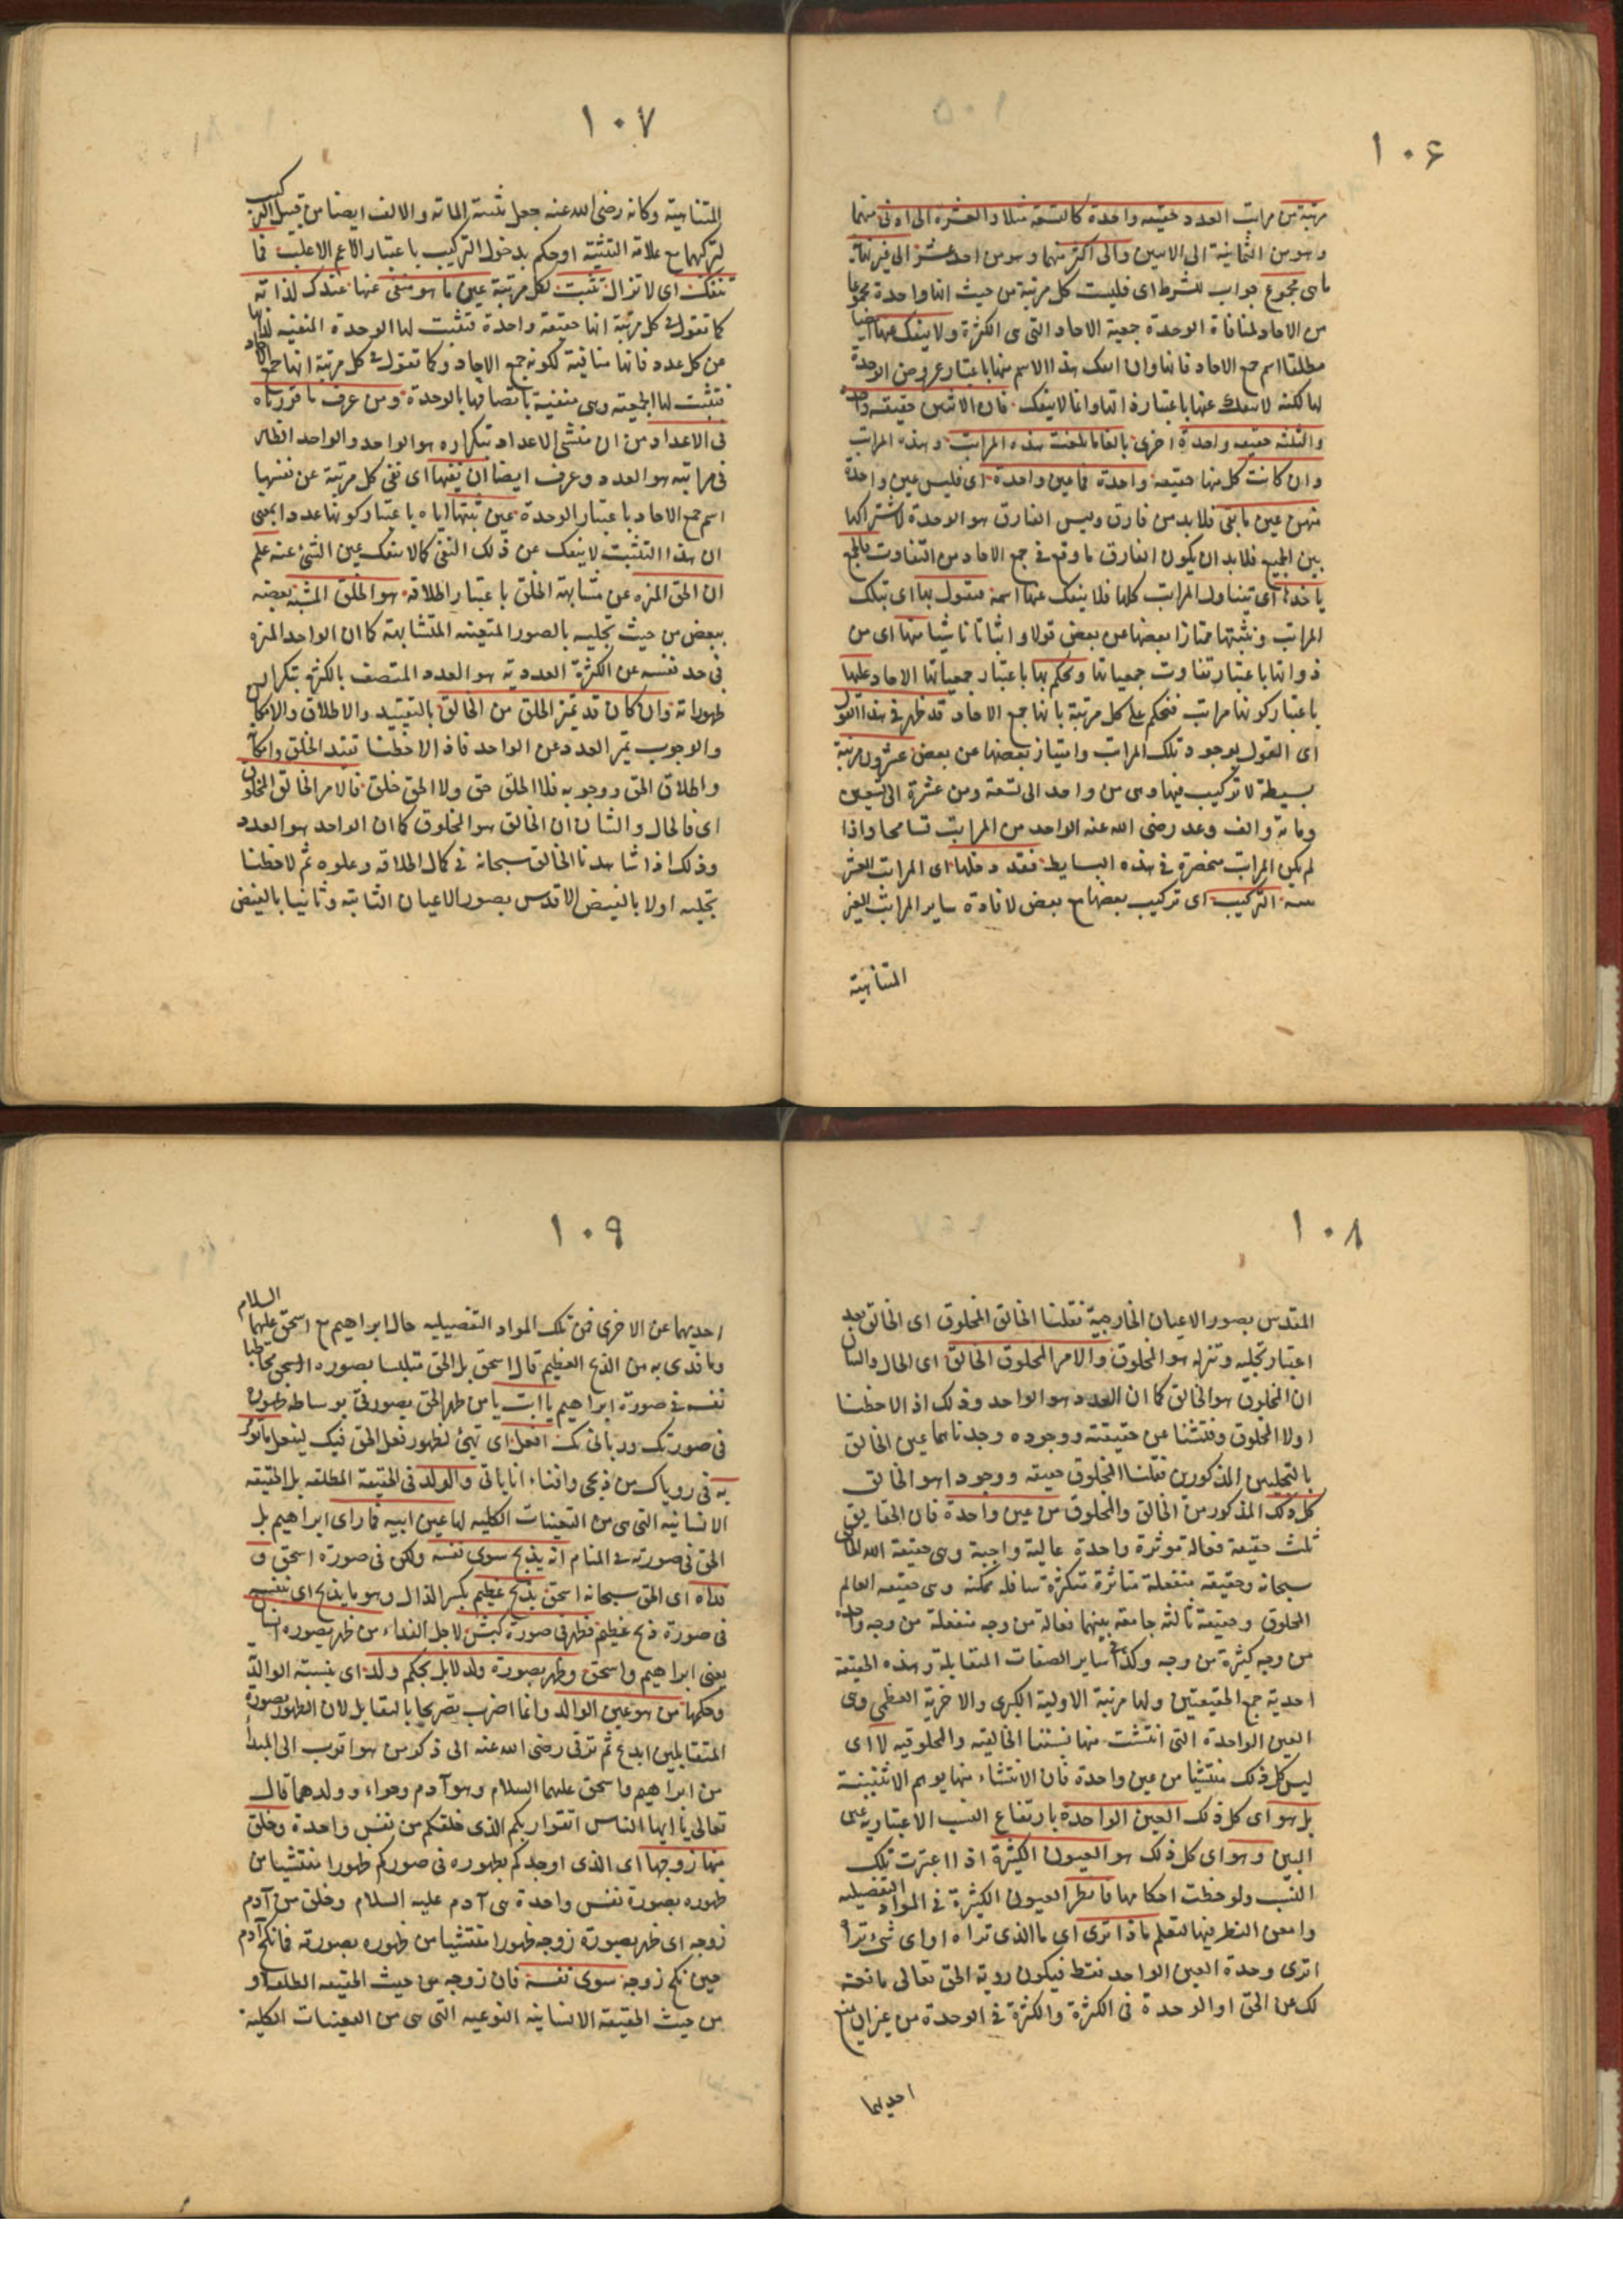 ١٠۶
مرتبة من مراتب العدد حقيقة واحدة كالتسعة مثلا والعشرة الى ادنى منهما
وهو من الثمانية الى الاثنين والى اكثر منهما وهو من احد عشر الى غير نهاية
ما هى مجموع جواب للشرط اى فليست كل مرتبة من حيث انها واحدة مجموعا
من الاحاد لمنافاة الوحدة جمعية الاحاد التى هى الكثرة ولا ينفك عنها ايضا
مطلقا اسم جمع الاحاد فانها وان انفك هذا الاسم عنها باعتبار عروض الوحدة
لها لكنه لا ينفك عنها باعتبار ذاتها وانما لا ينفك فان الاثنين حقيقة واحدة
والثلثة حقيقة واحدة اخرى بالغا ما بلغت هذه المراتب وهذه المراتب
وان كانت كل منها حقيقة واحدة فما عين واحدة اى فليس عين واحدة
منهن عين ما بقى فلا بد من فارق وليس الفارق هو الوحدة لاشتراكها
بين الجميع فلا بد ان يكون الفارق ما وقع فى جمع الاحاد من التفاوت فالجمع
ياخذها اى يتناول المراتب كلها فلا ينفك عنها اسمه فنقول بها اى بتلك
المراتب ونثبتها ممتازا بعضها من بعض قولا واثباتا ناشيا منها اى من
ذواتها باعتبار تفاوت جمعياتها ونحكم بها باعتبار جمعياتها الاحاد عليها
باعتبار كونها مراتب فنحكم على كل مرتبة بانها جمع الاحاد قد ظهر فى هذا القول
اى القول بوجود تلك المراتب وامتياز بعضها عن بعض عشرون مرتبة
بسيطة لا تركيب فيها وهى من واحد الى تسعة ومن عشرة الى تسعين
وماية والف وعد رضى الله عنه الواحد من المراتب تسامحا واذا
لم يكن المراتب منحصرة فى هذه البسايط فقد دخلها اى المراتب العشر
ـة التركيب اى تركيب بعضها مع بعض لافادة ساير المراتب الغير
المتناهية
١٠٧
المتناهية وكانه رضى الله عنه جعل تثنية الماته والالف ايضا من قبيل التركيب
لتركبهما مع علامة التثنية او حكم بدخول التركيب باعتبار الاعم الاغلب فما
تنفك اى لا تزال تثبت لكل مرتبة عين ما هو منفى عنها عندك لذاته
كما تقول فى كل مرتبة انها حقيقة واحدة فتثبت لها الوحدة المنفية لذاتها
عن كل عدد فانها منافية لكونه جمع الاحاد وكما تقول فى كل مرتبة انها جمع الاحاد
فتثبت لها الجمعية وهى منفية باتصافها بالوحدة ومن عرف ما قررناه
فى الاعداد من ان منشئ الاعداد بتكراره هو الواحد والواحد الظاهر
فى مراتبه هو العدد وعرف ايضا ان نفيها اى نفى كل مرتبة عن نفسها
اسم جمع الاحاد باعتبار الوحدة عين ثبتها اياه باعتبار كونها عددا بمعنى
ان هذا التثبت لا ينفك عن ذلك النفى كما لا ينفك عين الشئ عنه علم
ان الحق المنزه عن مشابهة الخلق باعتبار اطلاقه هو الخلق المشبه بعضه
ببعض من حيث تجليه بالصور المتعينه المتشابهة كما ان الواحد المنزه
فى حد نفسه عن الكثرة العددية هو العدد المتصف بالكثرة بتكرار
ظهوراته وان كان قد تميز الخلق من الخالق بالتقييد والاطلاق والامكان
والوجوب تميز العدد عن الواحد فاذا لاحظنا تقيد الخلق وامكانه
واطلاق الحق ووجوبه فلا الخلق حق ولا الحق خلق فالامر الخالق المخلوق
اى فالحال والشان ان الخالق هو المخلوق كما ان الواحد هو العدد
وذلك اذا شاهدنا الخالق سبحانه فى كمال اطلاقه وعلوه ثم لاحظنا
تجليه اولا بالفيض الاقدس بصور الاعيان الثابتة وثانيا بالفيض
١٠٨
المقدس بصور الاعيان الخارجية فقلنا الخالق المخلوق اى الخالق بعد
اعتبار تجليه وتنزله هو المخلوق والامر المخلوق الخالق اى الحال والشان
ان المخلوق هو الخالق كما ان العدد هو الواحد وذلك اذ الاحظنا
اولا المخلوق وفتشنا عن حقيقته ووجوده وجدناهما عين الخالق
بالتجليين المذكورين فقلنا المخلوق حقيقه ووجودا هو الخالق
كل ذلك المذكور من الخالق والمخلوق من عين واحدة فان الحقايق
ثلث حقيقة فعالة موثرة واحدة عالية واجبة وهى حقيقة الله الخالق
سبحانه وحقيقه منفعلة متاثرة متكثرة سافله ممكنه وهى حقيقه العالم
المخلوق وحقيقة ثالثه جامعة بينهما فعالة من وجه منفعلة من وجه واحدة
من وجه كثيرة من وجه وكذا فى ساير الصفات المتقابلة وهذه الحقيقة
احدية جمع الحقيقتين ولها مرتبة الاولية الكبرى والاخرية العظمى وهى
العين الواحدة التى انتشت منها نسبتا الخالقيه والمخلوقيه لا اى
ليس كل ذلك منتشيا من عين واحدة فان الانتشاء منها يوهم الاثنينية
بل هو اى كل ذلك العين الواحدة بارتفاع النسب الاعتبارية عن
البين وهو اى كل ذلك هو العيون الكثيرة اذا اعتبرت تلك
النسب ولوحظت احكامها فانظر العيون الكثيرة فى المواد التفصيليه
وامعن النظر فيها لتعلم ماذا ترى اى ما الذى تراه او اى شئ تراه
اترى وحدة العين الواحد فقط فيكون رويه الحق تعالى مانعه
لك عن الحق او الوحدة فى الكثرة والكثرة فى الوحدة من غير ان يمنع
احديهما
١٠٩
احديهما عن الاخرى فمن تلك المواد التفصيليه حال ابراهيم مع اسحق عليهما السلام
وما فدى به من الذبح العظيم قال اسحق بل الحق متلبسا بصوره اسحق مخاطبا
نفسه فى صورة ابراهيم يا ابت يا من ظهر الحق بصورتى بوساطه ظهوره
فى صورتك وربانى بك افعل اى تهيئ لظهور فعل الحق فيك ليفعل ما تومر
به فى روياك من ذبحى وافناء اناياتى والولد فى الحقيقة المطلقه بل الحقيقه
الانسانيه التى هى من التعينات الكليه لها عين ابيه فما راى ابراهيم بل
الحق فى صورته فى المنام انه يذبح سوى نفسه ولكن فى صورة اسحق و
فداه اى الحق سبحانه اسحق بذبح عظيم بكسر الذال وهو ما يذبح اى نفسه
فى صورة ذبح عظيم فظهر فى صورة كبش لاجل الفداء من ظهر بصوره انسان
يعنى ابراهيم واسحق وظهر بصورة ولد لا بل بحكم ولد اى بنسبته الوالد
وحكمها من هو عين الوالد وانما اضرب تصريحا بالتقابل لان الظهور بصورة
المتقابلين ابدع ثم ترقى رضى الله عنه الى ذكر من هو اقرب الى المبدأ
من ابراهيم واسحق عليهما السلام وهو آدم وحواء وولدهما قال
تعالى يا ايها الناس اتقوا ربكم الذى خلقكم من نفس واحدة وخلق
منها زوجها اى الذى اوجدكم بظهوره فى صوركم ظهورا منتشيا من
ظهوره بصورة نفس واحدة هى آدم عليه السلام وخلق من آدم
زوجه اى ظهر بصورة زوجه ظهورا منتشيا من ظهوره بصورته فانكح آدم
حين نكح زوجه سوى نفسه فان زوجه من حيث الحقيقه المطلقه او
من حيث الحقيقة الانسانيه النوعيه التى هى من التعينات الكلية